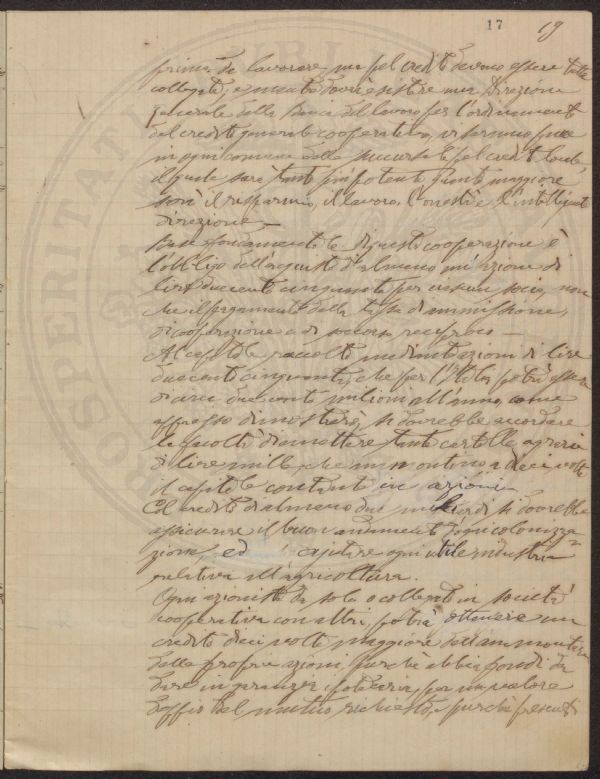 17 19
prima di lavorare, ma pel credito devono essere tutte
collegate, e mentre dovrà esistere una Direzione
generale della Banca del lavoro per l'ordinamento
del credito generale cooperativo, vi saranno pure
in ogni comune delle succursali pel credito locale,
il quale sarà tanto più potente quanto maggiore
sarà il risparmio, il lavoro, l'onestà e l'intelligente
direzione —
Base fondamentale di questa cooperazione è
l'obbligo dell'acquisto d'almeno un'azione di
lire duecento cinquanta per ciascun socio, non
che il pagamento della tassa di ammissione,
di cooperazione e di soccorso reciproco —
Al capitale raccolto mediante azioni di lire
duecento cinquanta, che per l'Italia potrà essere
di circa duecento milioni all'anno, come
appresso dimostrerò, si dovrebbe accordare
la facoltà di emettere tante cartelle agrarie
di lire mille, che ammontino a dieci volte
il capitale contante in azioni
Col credito di almeno due miliardi si dovrebbe
assicurare il buon andamento d'ogni colonizza
zione, ed aiutare ogni utile industria
relativa all'agricoltura.
Ogni azionista da solo o collegato in società
cooperativa con altri, potrà ottenere un
credito dieci volte maggiore dell'ammontare
delle proprie azioni, purchè abbia fondi da
dare in garanzia ipotecaria, per un valore
doppio del mutuo richiesto, e purchè presenti
PROSPERITATI PUBLICAE